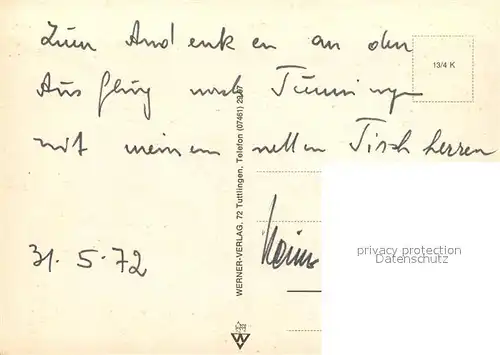 Zum Andenken an den
Ausflug nach Tunningen
mit meinem netten Tischherren
31. 5. 72
Heinz
13/4 K
WERNER-VERLAG, 72 Tuttlingen, Telefon (07461)
privacy protection
Datenschutz